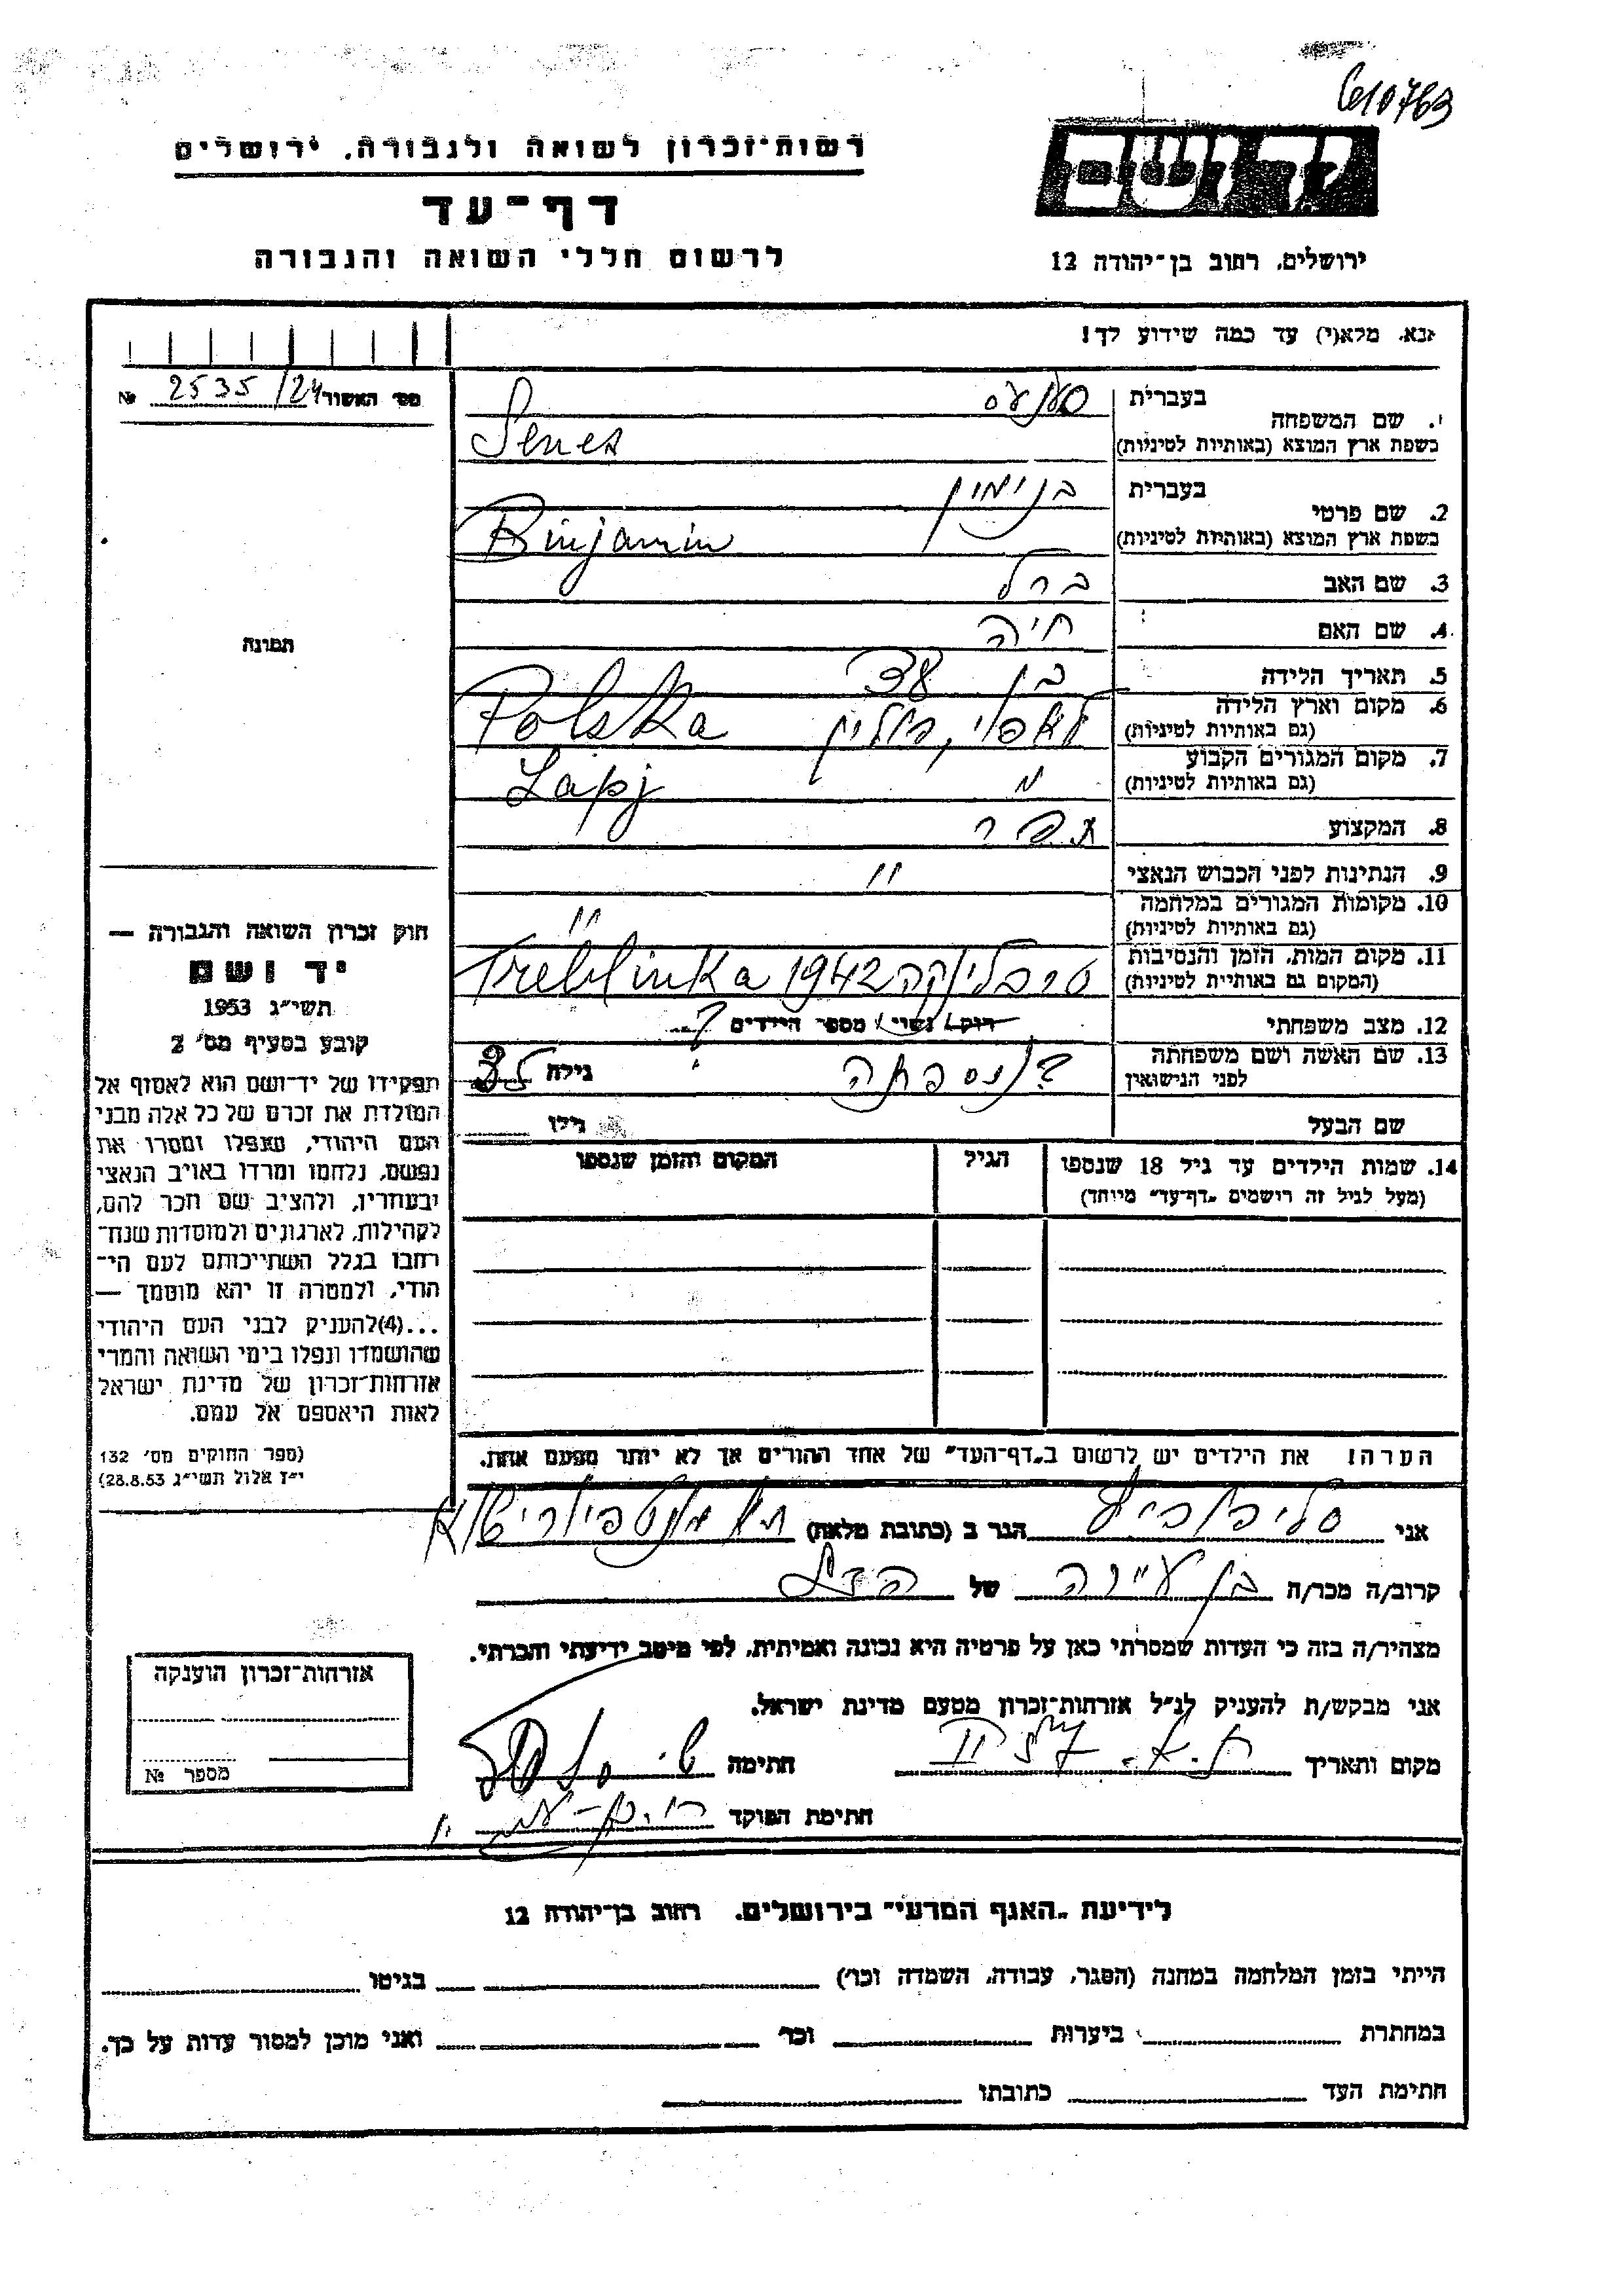 610763
יד ושם
רשות־זכרון לשואה ולגבורה, ירושלים
דף־עד
לרשום חללי השואה והגבורה
ירושלים, רחוב בן־יהודה 12
נא. מלא(י) עד כמה שידוע לך!
מס' האשור 2535/24 №
1. שם המשפחה
בעברית סענעס
בשפת ארץ המוצא (באותיות לטיניות) Senes
2. שם פרטי
בעברית בנימין
בשפת ארץ המוצא (באותיות לטיניות) Binjamin
3. שם האב ברל
4. שם האם חיה
5. תאריך הלידה בן
6. מקום וארץ הלידה פולין Polska
(גם באותיות לטיניות)
7. מקום המגורים הקבוע " Lapj
(גם באותיות לטיניות)
8. המקצוע
9. הנתינות לפני הכבוש הנאצי "
10. מקומות המגורים במלחמה "
(גם באותיות לטיניות)
11. מקום המות, הזמן והנסיבות טרבלינקה 1942 Treblinka
(המקום גם באותיות לטיניות)
12. מצב משפחתי רווק/ נשוי/ מספר הילדים ?
13. שם האשה ושם משפחתה
לפני הנישואין
גילה
שם הבעל
גילו
14. שמות הילדים עד גיל 18 שנספו
(מעל לגיל זה רושמים „דף־עד" מיוחד)
הגיל
המקום והזמן שנספו
תמונה
חוק זכרון השואה והגבורה —
יד ושם
תשי"ג 1953
קובע בסעיף מס' 2
תפקידו של יד־ושם הוא לאסוף אל
המולדת את זכרם של כל אלה מבני
העם היהודי, שנפלו ומסרו את
נפשם, נלחמו ומרדו באויב הנאצי
ובעוזריו, ולהציב שם וזכר להם,
לקהילות, לארגונים ולמוסדות שנח־
רבו בגלל השתייכותם לעם הי־
הודי, ולמטרה זו יהא מוסמך —
...(4)להעניק לבני העם היהודי
שהושמדו ונפלו בימי השואה והמרי
אזרחות־זכרון של מדינת ישראל
לאות היאספם אל עמם.
(ספר החוקים מס' 132
י"ז אלול תשי"ג 28.8.53)
הערה! את הילדים יש לרשום ב„דף־העד" של אחד ההורים אך לא יותר מפעם אחת.
אני הגר ב (כתובת מלאה)
קרוב/ה מכר/ה בן עיירה של
מצהיר/ה בזה כי העדות שמסרתי כאן על פרטיה היא נכונה ואמיתית, לפי מיטב ידיעתי והכרתי.
אני מבקש/ת להעניק לנ"ל אזרחות־זכרון מטעם מדינת ישראל.
מקום ותאריך ת.א. חתימה
חתימת הפוקד
אזרחות־זכרון הוענקה
מספר №
לידיעת „האגף המדעי" בירושלים, רחוב בן־יהודה 12
הייתי בזמן המלחמה במחנה (הסגר, עבודה, השמדה וכו') בגיטו
במחתרת ביערות וכו' ואני מוכן למסור עדות על כך.
חתימת העד כתובתו